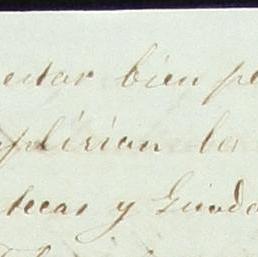 estar bien pe
mplirian la
tecas y Guada